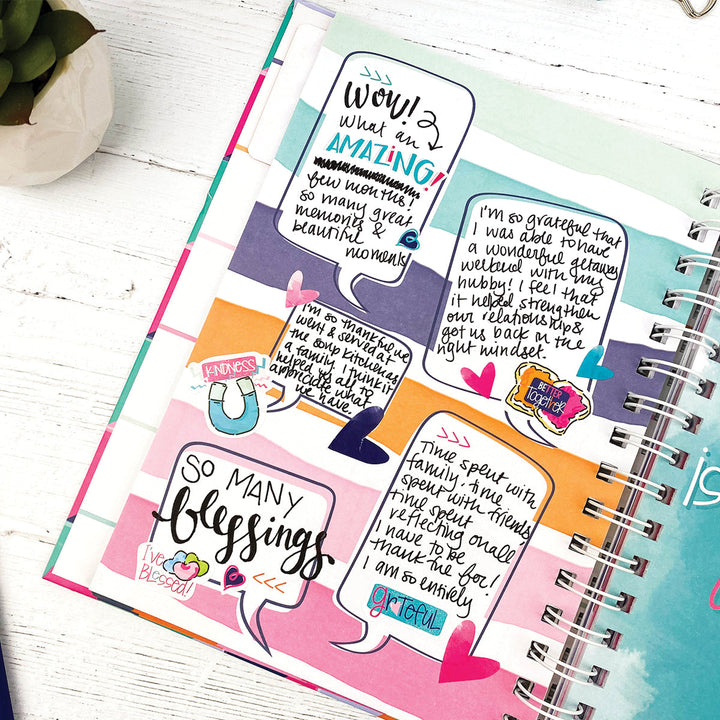 WOW!
What an
AMAZING!
few months!
so many great
memories &
beautiful
moments
I'm so grateful that
I was able to have
a wonderful getaway
weekend with my
hubby! I feel that
it helped strengthen
our relationship &
get us back in the
right mindset.
BETTER
Together
I'm so thankful we
went & served at
the soup kitchen as
a family. I think it
helped us all to
appriciate what
we have.
KINDNESS
SO MANY
blessings
I'Ve
BLessed!
Time spent with
family, time
spent with friends,
time spent
reflecting on all
I have to be
thank the for!
I am so entirely
grateful
is